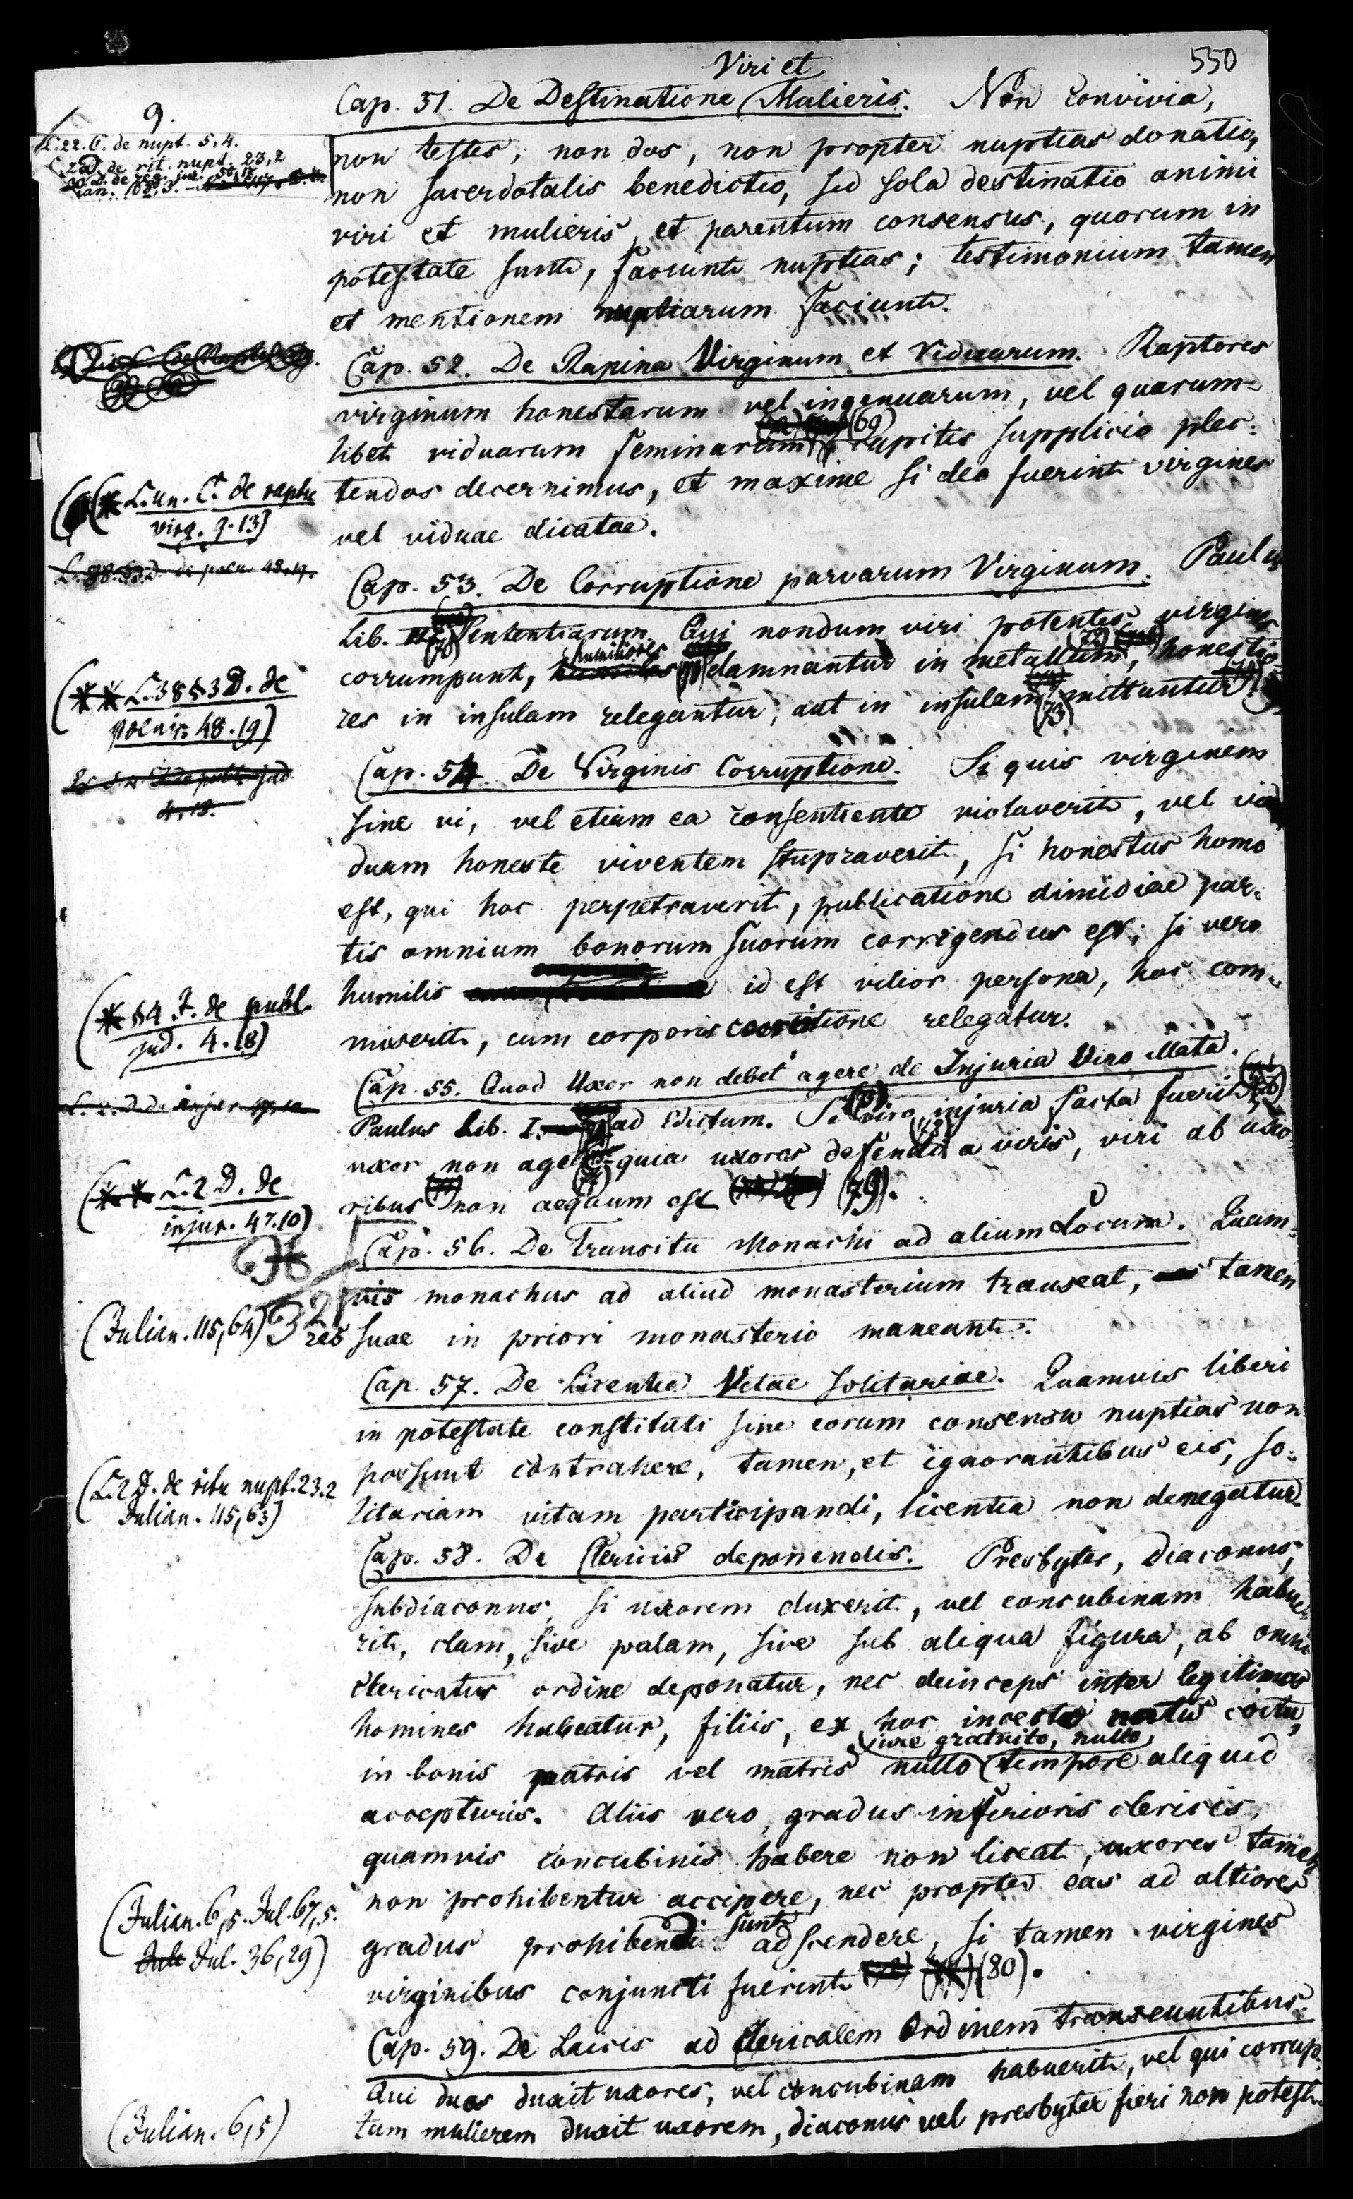 550
Viri et
Cap. 51. De Destinatione Mulieris. Non convivia,
9.
L. 22. C. de nupt. 5, 4.
L. 2 D. de rit. nupt. 23, 2
non testes, non dos, non propter nuptias donatio,
non sacerdotalis benedictio, sed sola destinatio animi
viri et mulieris, et parentum consensus, quorum in
potestate sunt, faciunt nuptias; testimonium tamen
et mentionem nuptiarum faciunt.
Cap. 52. De Rapina Virginum et Viduarum. Raptores
virginum honestarum vel ingenuarum, vel quarum-
(69)
libet viduarum feminarum, capitis supplicio plec-
(* L. un. C. de raptu
virg. 9. 13)
tendos decernimus, et maxime si deo fuerint virgines
vel viduae dicatae.
L. 38. §3 D. de poen. 48. 19.
Cap. 53. De Corruptione parvarum Virginum. Paulus
Lib. (70) Sententiarum. Qui nondum viri potentes virgines
(** L. 38 §3 D. de
poenis. 48. 19)
corrumpunt, humiliores (71) damnantur in metallum, (72) honestio-
res in insulam relegantur, aut in insulam (73) mittuntur
Cap. 54. De Virginis Corruptione. Si quis virginem
sine vi, vel etiam ea consentiente violaverit, vel vi-
duam honeste viventem stupraverit, si honestus homo
est, qui hoc perpetraverit, publicatione dimidiae par-
tis omnium bonorum suorum corrigendus est; si vero
(* §4 J. de publ.
jud. 4. 18)
humilis id est vilior persona, hoc com-
miserit, cum corporis coercitione relegatur.
Cap. 55. Quod Uxor non debet agere de Injuria Viro illata.
Paulus Lib. I. ad Edictum. Si viro injuria facta fuerit (76)
(** L. 2 D. de
injur. 47. 10)
uxor non aget quia uxores defendi a viris, viri ab uxo-
ribus non aequum est (79).
Cap. 56. De Transitu Monachi ad alium Locum. Quam-
vis monachus ad aliud monasterium transeat, tamen
(Julian. 115, 64)
321
res suae in priori monasterio maneant.
Cap. 57. De Licentia Vitae solitariae. Quamvis liberi
in potestate constituti sine eorum consensu nuptias non
(L. 2 D. de ritu nupt. 23. 2
Julian. 115, 63)
possunt contrahere, tamen, et ignorantibus eis, so-
litariam vitam participandi, licentia non denegatur.
Cap. 58. De Clericis deponendis. Presbyter, Diaconus,
subdiaconus, si uxorem duxerit, vel concubinam habue-
rit, clam, sive palam, sive sub aliqua figura, ab omni
clericatus ordine deponatur, nec deinceps inter legitimos
homines habeatur, filiis, ex hoc incesto natis coitu,
iure gratuito, nullo
in bonis patris vel matris nullo tempore aliquid
accepturis. Aliis vero, gradus inferioris clericis,
quamvis concubinis habere non liceat, uxores tamen
(Julian. 6, 5. Jul. 67, 5.
Jul. 36, 29)
non prohibentur accipere, nec propter eas ad altiores
gradus prohibendi sunt adscendere, si tamen virgines
virginibus conjuncti fuerint (80).
Cap. 59. De Laicis ad Clericalem Ordinem transeuntibus.
Qui duas duxit uxores, vel concubinam habuerit, vel qui corrup-
(Julian. 6, 5)
tam mulierem duxit uxorem, diaconus vel presbyter fieri non potest.